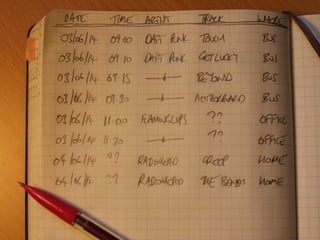 DATE TIME ARTIST TRACK WHERE
03/06/14 09:00 DAFT PUNK TOUCH BUS
03/06/14 09:10 DAFT PUNK GET LUCKY BUS
03/06/14 09:15 BEYOND BUS
03/06/14 09:30 MOTHERBOARD BUS
03/06/14 11:00 FLAMING LIPS ?? OFFICE
03/06/14 11:20 ?? OFFICE
04/06/14 ?? RADIOHEAD CREEP HOME
04/06/14 ?? RADIOHEAD THE BENDS HOME